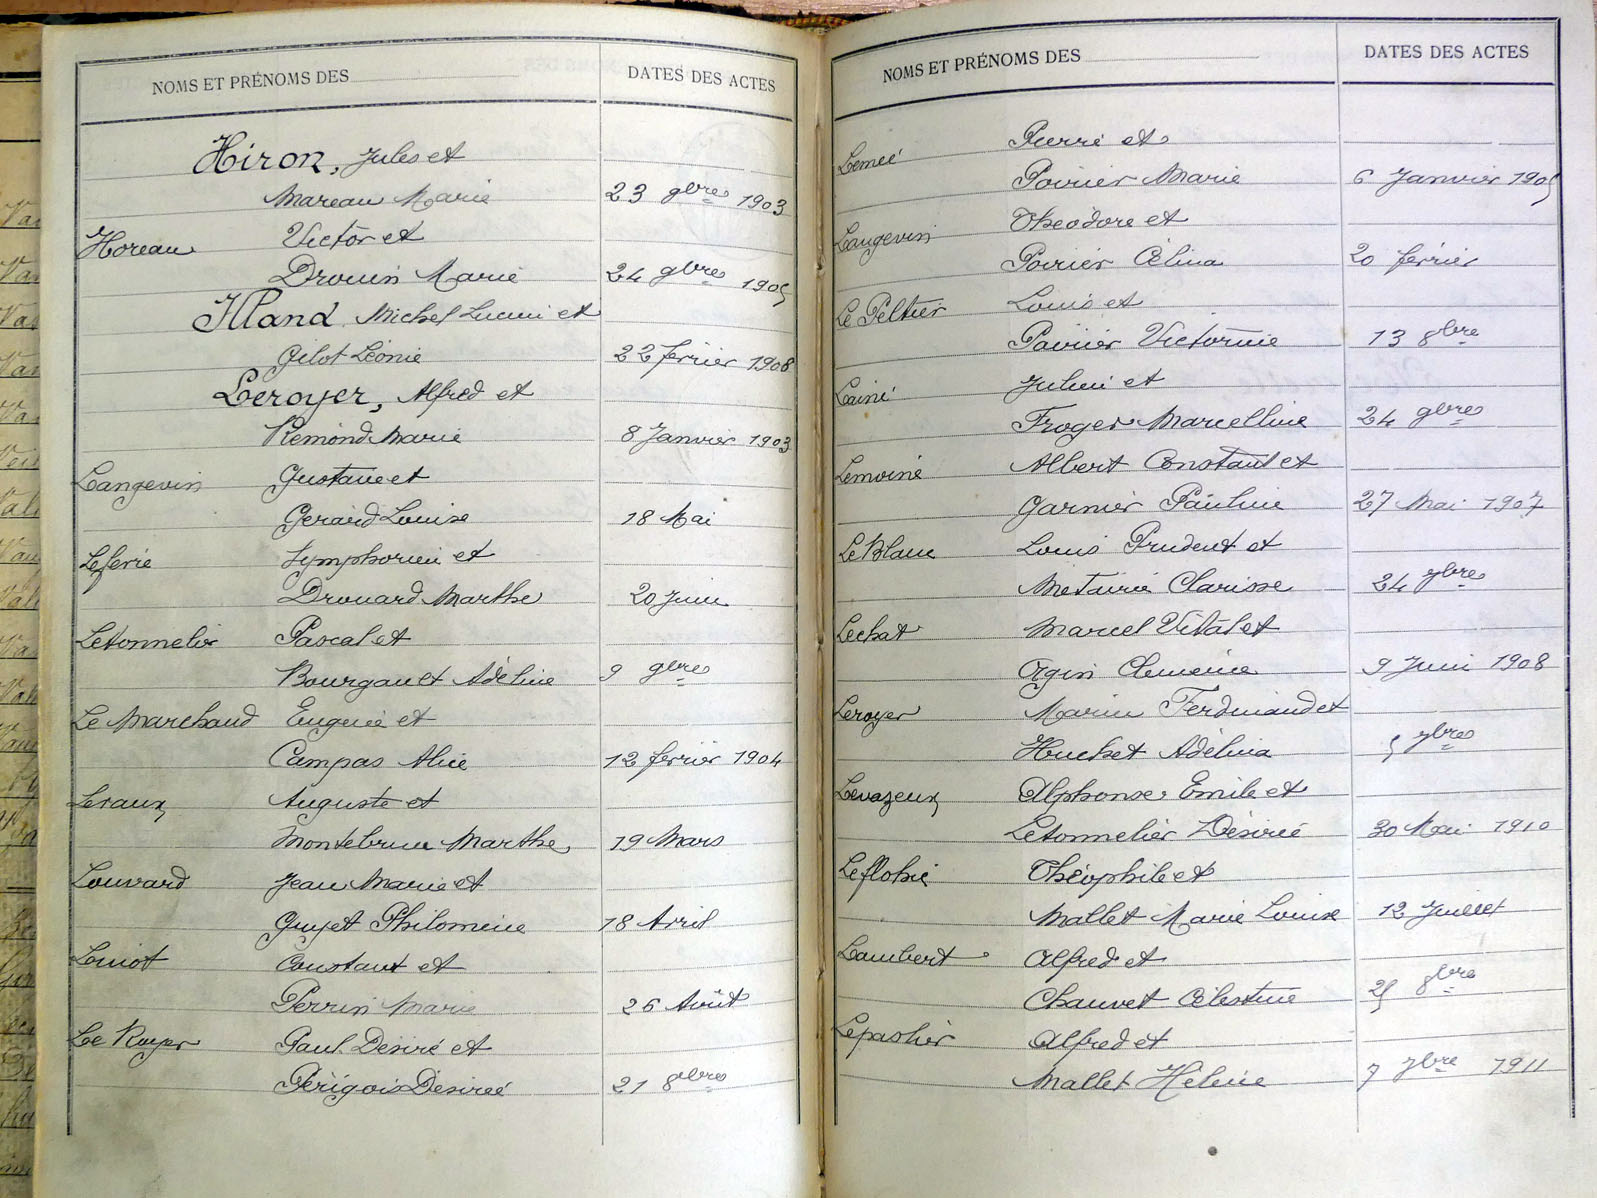 NOMS ET PRÉNOMS DES
DATES DES ACTES
Hiron, Jules et
Mareau Marie 23 9bres 1903
Horeau Victor et
Drouin Marie 24 9bres 1905
Illand Michel Lucien et
Gilot Léonie 22 février 1908
Leroyer, Alfred et
Remond Marie 8 Janvier 1903
Langevin Gustave et
Gerard Louise 18 Mai
Lefevre Symphorien et
Drouard Marthe 20 Juin
Letonnelier Pascal et
Bourgault Adéline 9 9bres
Le Marchand Eugene et
Campas Alice 12 février 1904
Leraux Auguste et
Montebrun Marthe 19 Mars
Louvard Jean Marie et
Guyet Philomene 18 Avril
Constant et
Perrin Marie 26 Août
Le Royer Paul Desiré et
Périgois Desireé 21 8bres
NOMS ET PRÉNOMS DES
DATES DES ACTES
Pierre et
Poirier Marie 6 Janvier 1905
Langevin Théodore et
Poirier Célina 20 février
Le Peltier Louis et
Poirier Victorine 13 8bre
Lainé Julien et
Froger Marcelline 24 9bres
Lemoine Albert Constant et
Garnier Pauline 27 Mai 1907
Le Blanc Louis Prudent et
Metairie Clarisse 24 7bres
Lechat Marcel Vital et
Agin Clemence 9 Juin 1908
Leroyer Marin Ferdinand et
Huchet Adélina 5 7bres
Levazeux Alphonse Emile et
Letonnelier Désirée 30 Mai 1910
Leflohic Théophile et
Mallet Marie Louise 12 Juillet
Lambert Alfred et
Chauvet Célestine 25 8bre
Lepaslier Alfred et
Mallet Hélène 7 7bre 1911